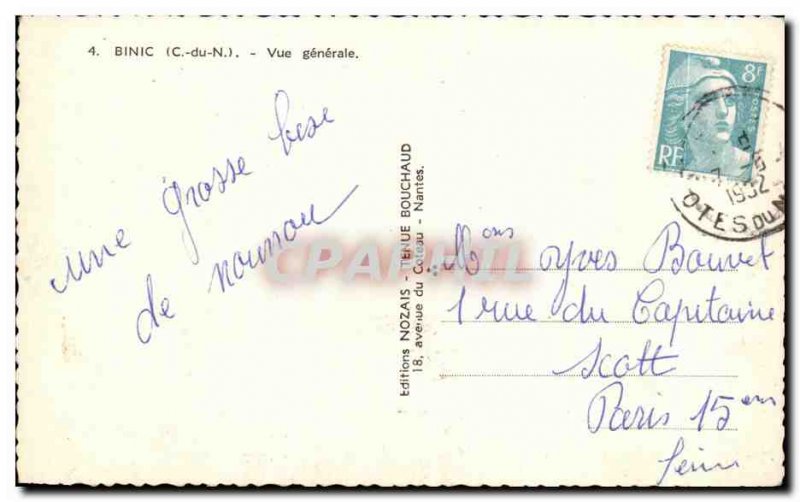 4. BINIC (C.-du-N.). - Vue générale.
une grosse bise
de nounou
Editions NOZAIS - TENUE BOUCHAUD
18, avenue du Coteau - Nantes.
8F
RF
1952
OTES DU N
CPARPHIL
Mons Yves Bouvet
1 rue du Capitaine
Scott
Paris 15em
Seine